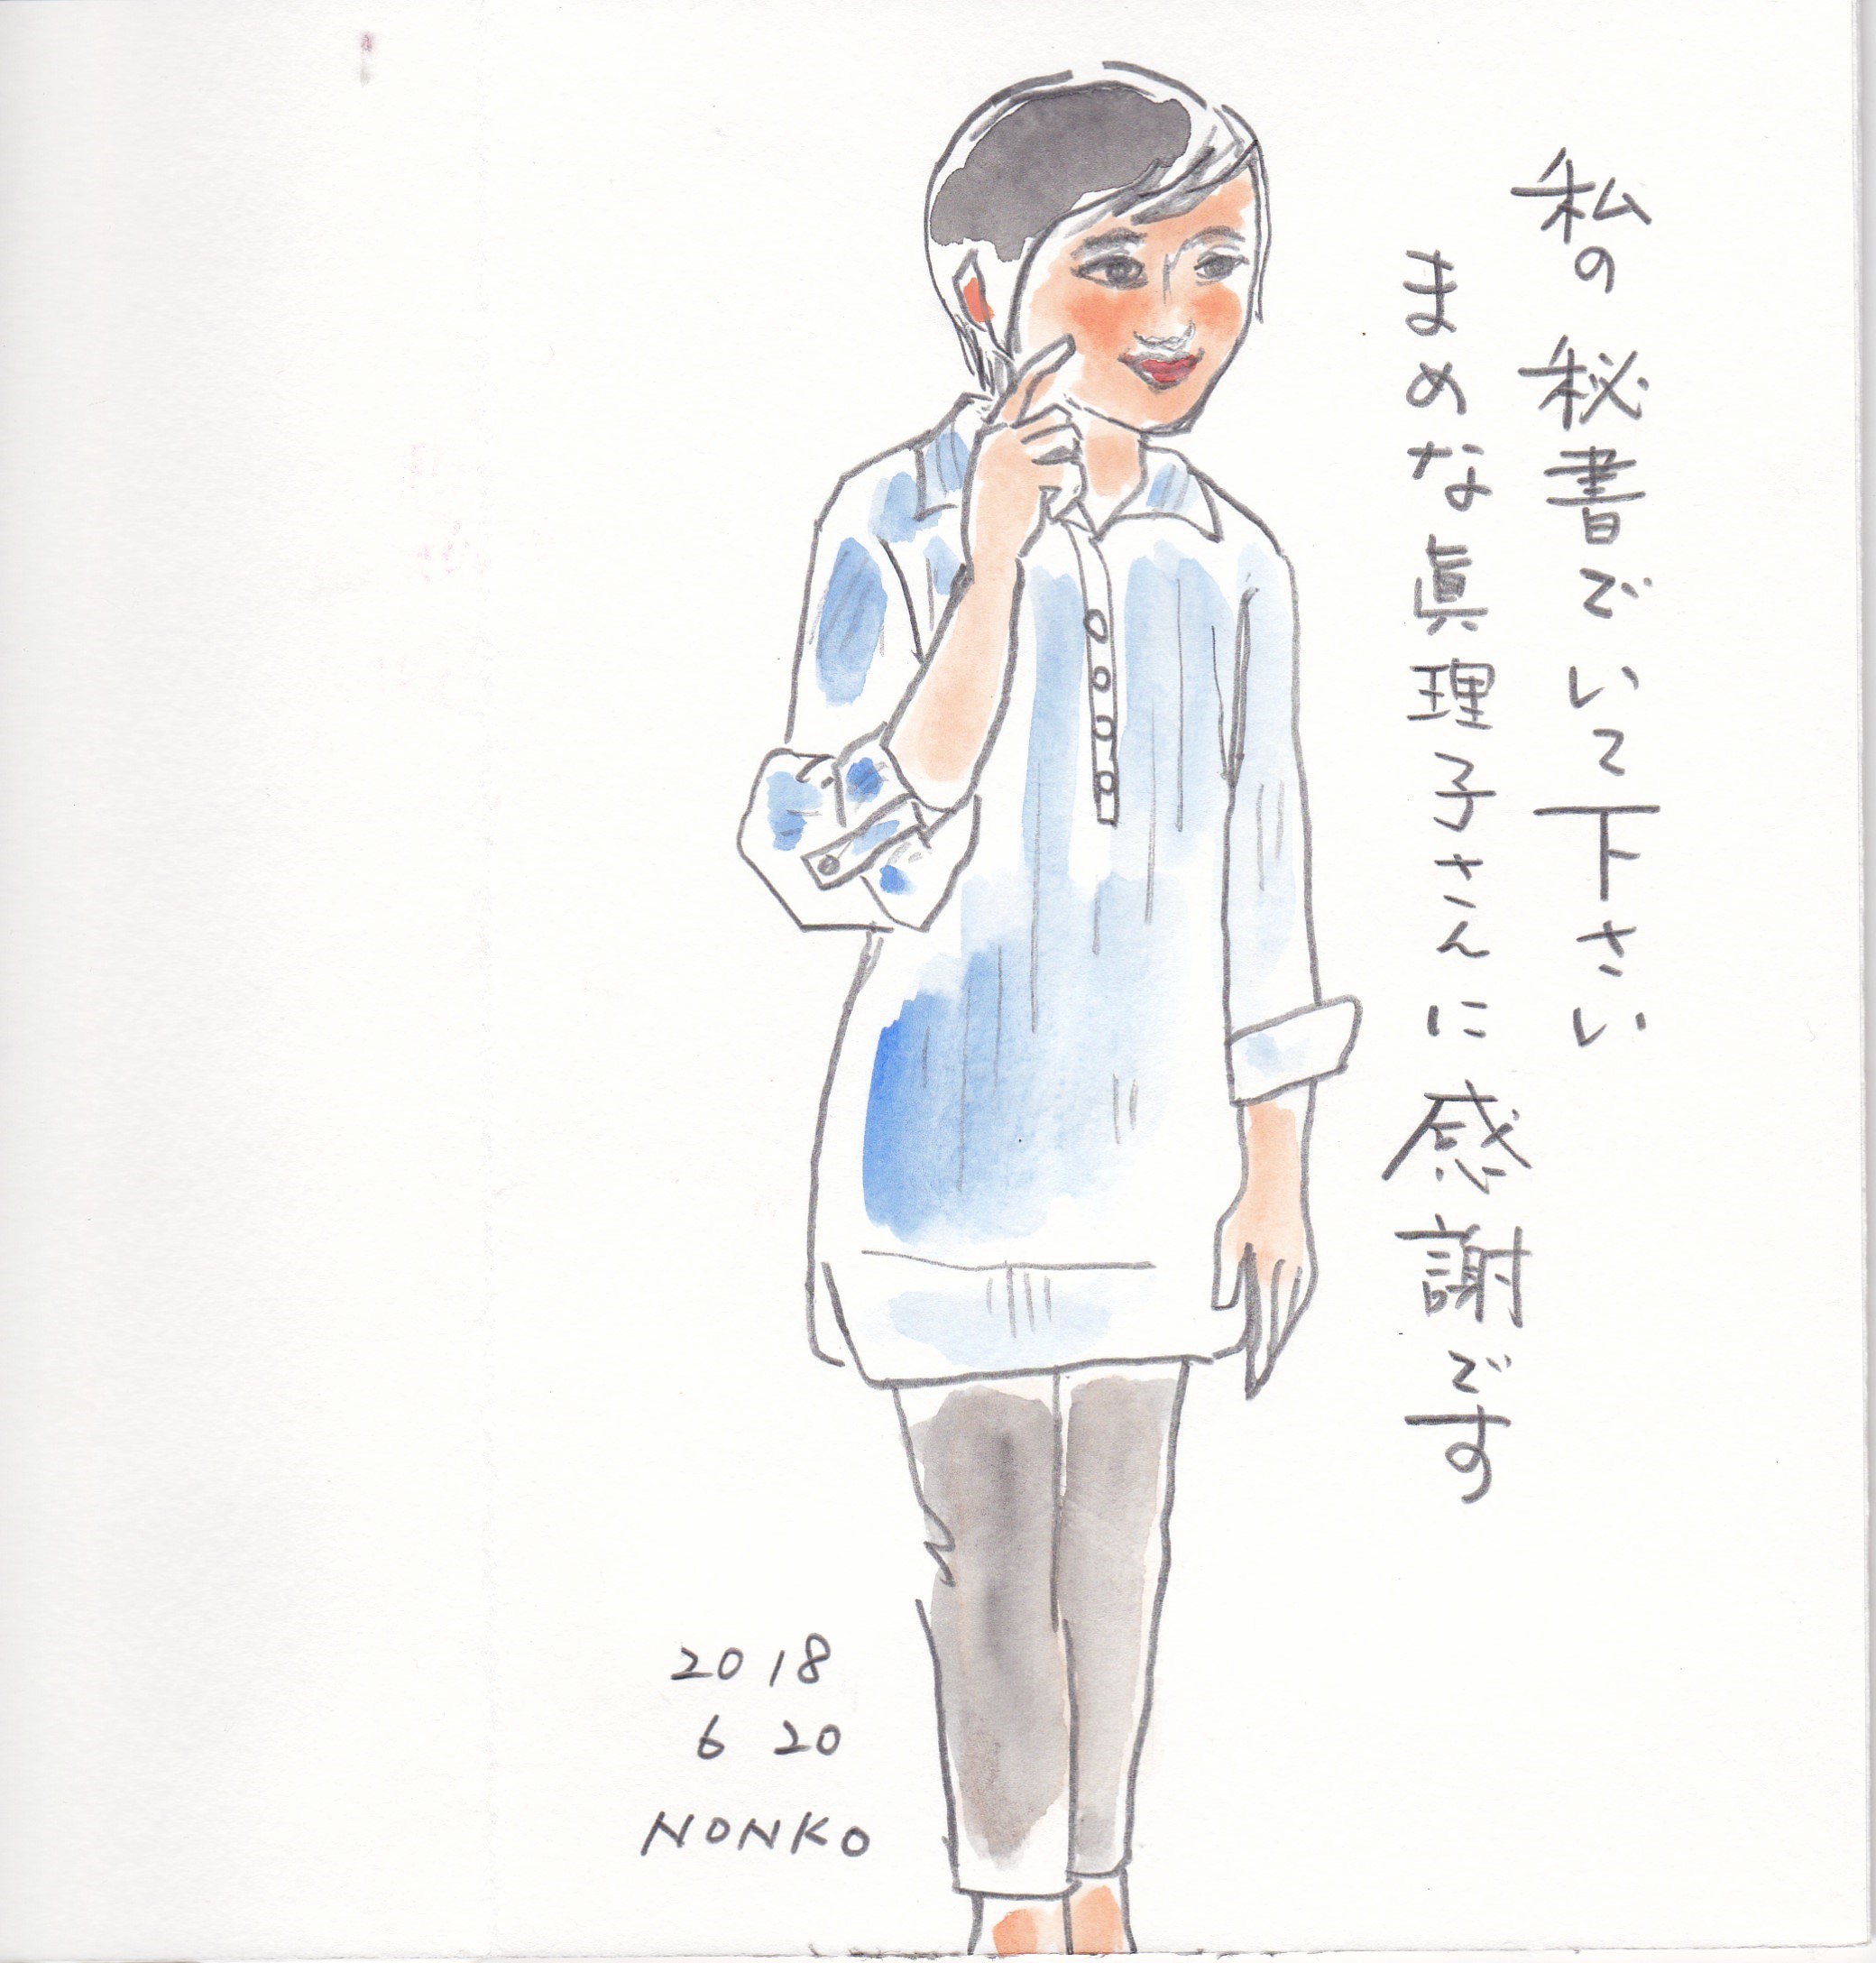 私の秘書でいて下さい
まめな眞理子さんに感謝です
2018
6 20
NONKO